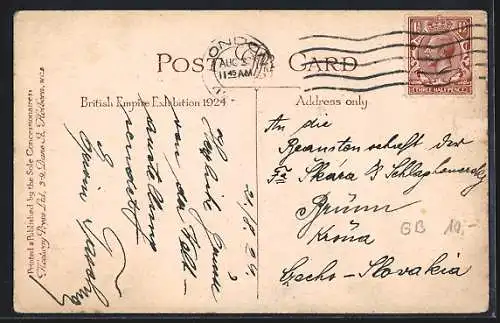 POST CARD
LONDON
AUG 2
11.45 AM
THREE HALFPENCE
British Empire Exhibition 1924
Address only
Printed & Published by the Sole Concessionaires
Fleetway Press Ltd. 3-9, Dane St. Holborn, W.C.2
Herzliche Grüsse
von der Welt-
ausstellung
sendet
21/8. 24.
An die
Beamtenschaft der
Fa Škára & 
Brünn
Kröna
Czecho-Slovakia
GB 10.-